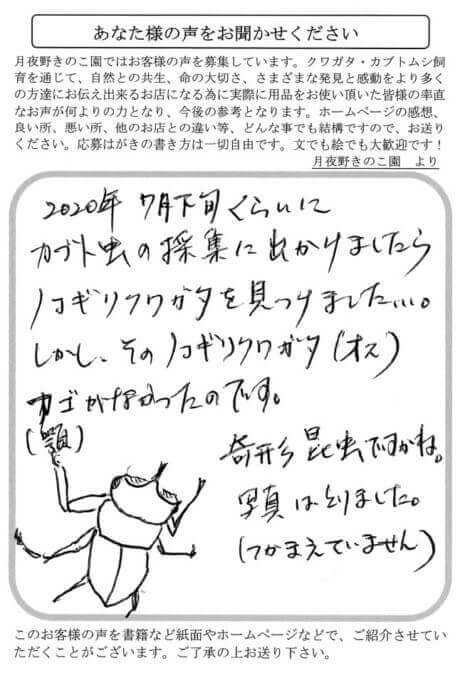 あなた様の声をお聞かせください
月夜野きのこ園ではお客様の声を募集しています。クワガタ・カブトムシ飼
育を通じて、自然との共生、命の大切さ、さまざまな発見と感動をより多く
の方達にお伝え出来るお店になる為に実際に用品をお使い頂いた皆様の率直
なお声が何よりの力となり、今後の参考となります。ホームページの感想、
良い所、悪い所、他のお店との違い等、どんな事でも結構ですので、お送り
ください。応募はがきの書き方は一切自由です。文でも絵でも大歓迎です！
月夜野きのこ園　より
2020年 7月下旬くらいに
カブト虫の採集に出かけましたら
ノコギリクワガタを見つけました…。
しかし、そのノコギリクワガタ(オス)
カゴがなかったのです。
(顎)
奇形昆虫ですかね。
写真はとりました。
(つかまえていません)
このお客様の声を書籍など紙面やホームページなどで、ご紹介させてい
ただくことがございます。ご了承の上お送り下さい。